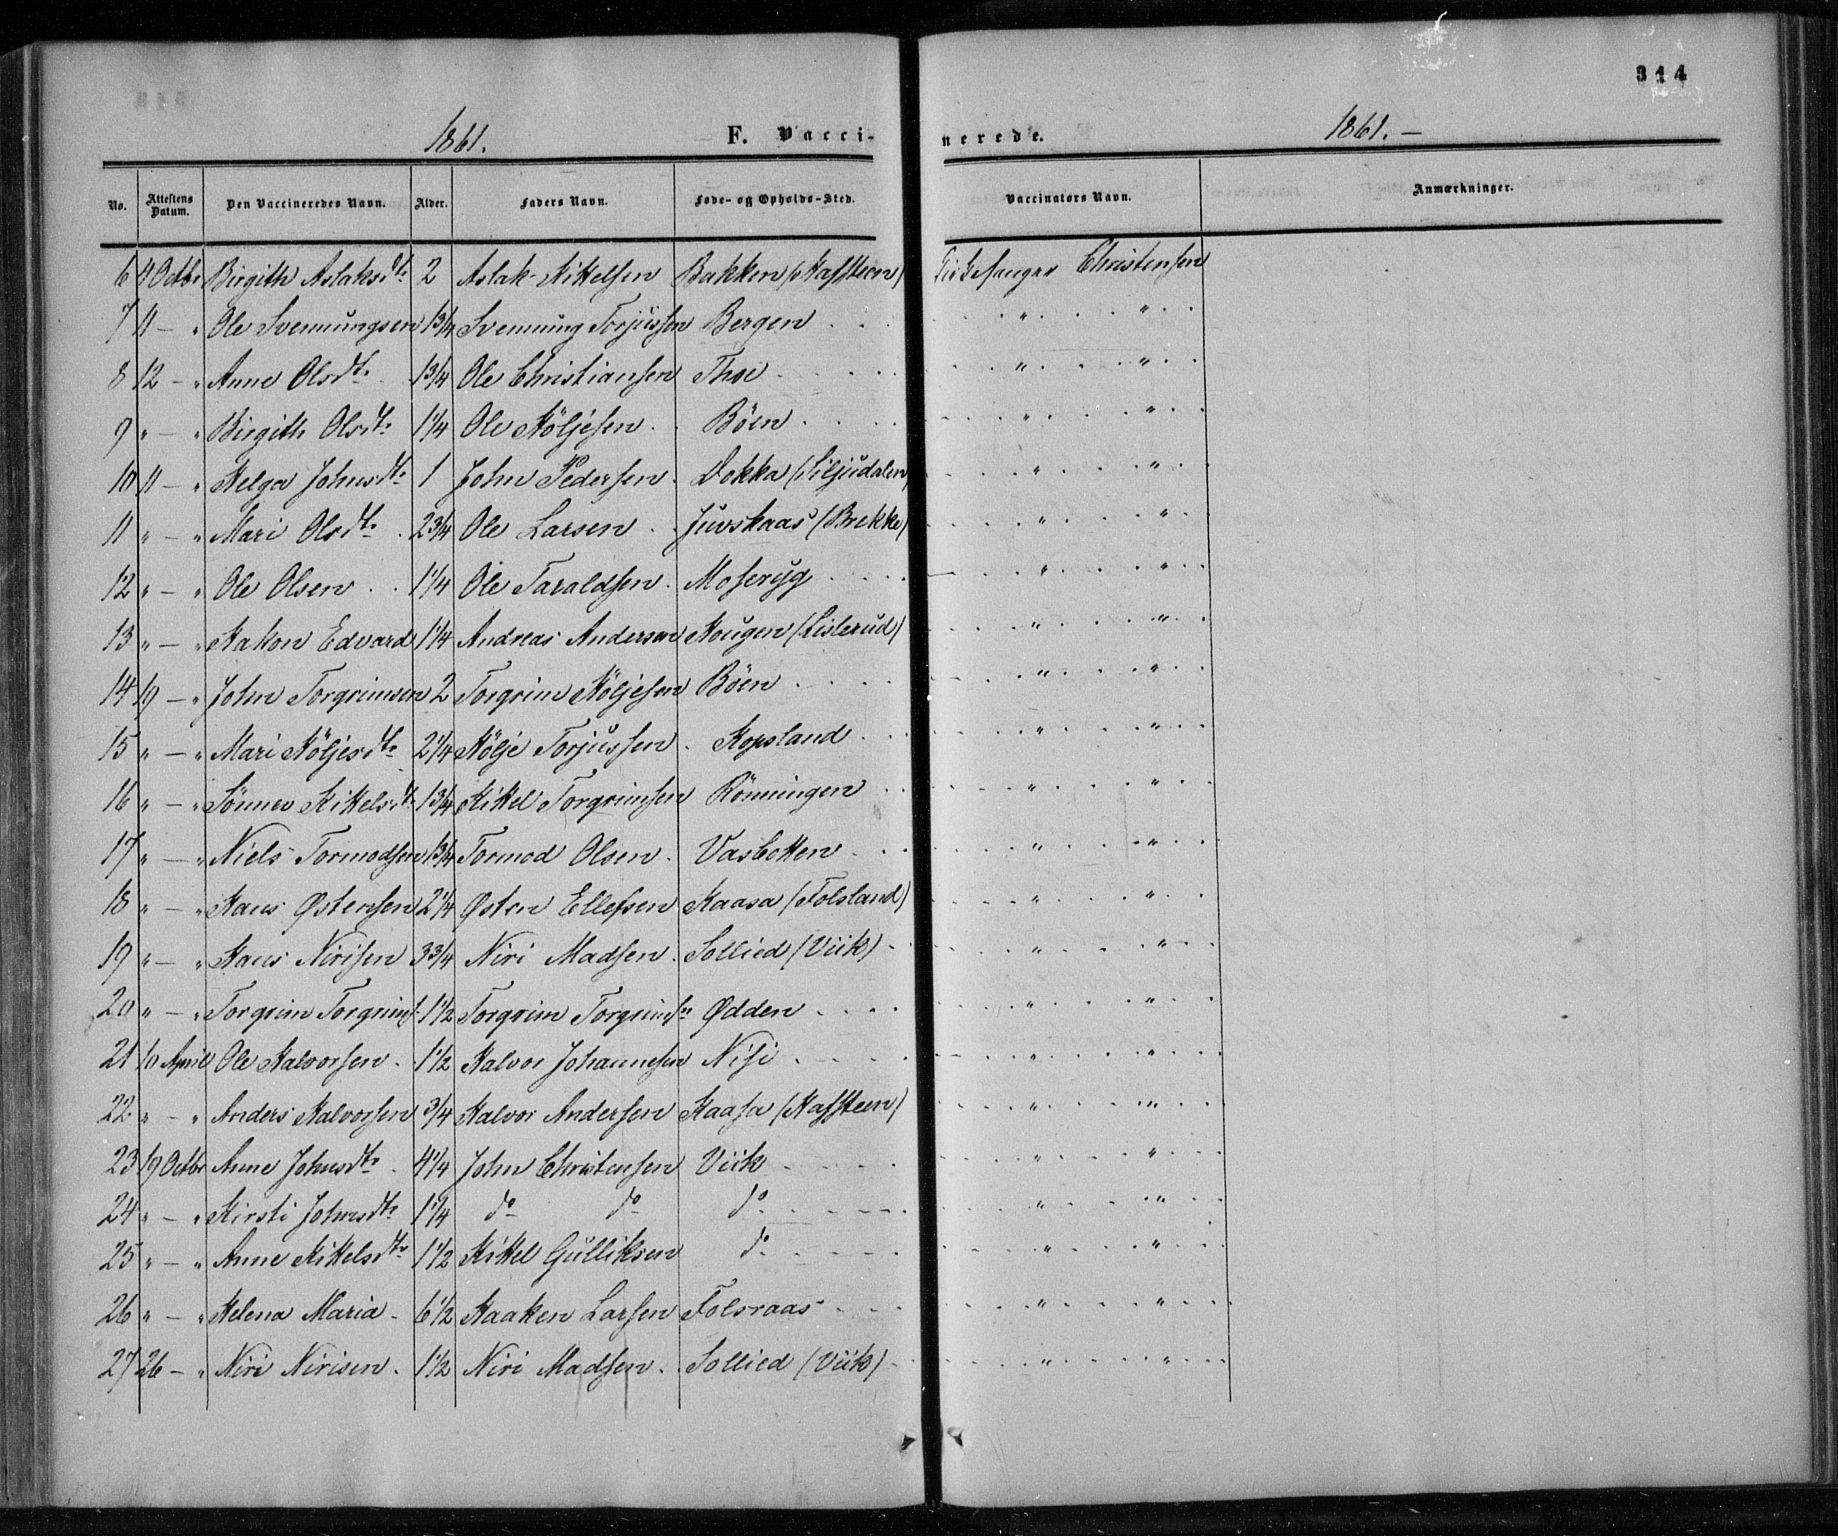 314
1861. F. Vacci- nerede. 1861. –
No. Attestens Datum. Den Vaccineredes Navn. Alder. Faders Navn. Føde- og Opholds-Sted. Vaccinators Navn. Anmærkninger.
6 11 Octbr Birgith Aslaksdtr 2 Aslak Kittelsen Bakken (Hafsteen) Kirkesanger Christensen
7 11 – " Ole Svennungsen 1 3/4 Svennung Torjussen Bergen " "
8 12 – " Anne Olsdtr 1 3/4 Ole Christiansen Thoe " "
9 " – " Birgith Olsdtr 1 1/4 Ole Høljesen Böen " "
10 11 – " Helga Johnsdtr 1 John Pedersen Dokka (Siljudalen) " "
11 " – " Mari Olsdtr 2 3/4 Ole Larsen Juvskaas (Brekke) " "
12 " – " Ole Olsen 1 1/4 Ole Taraldsen Moseryg " "
13 " – " Hakon Edvard 1 1/4 Andreas Andersen Hougen (Listerud) " "
14 19 – " John Torgrimsen 2 Torgrim Høljesen Böen " "
15 " – " Mari Høljesdtr 2 1/4 Hølje Torjussen Kopsland " "
16 " – " Sönnev Kittelsdtr 1 3/4 Kittel Torgrimsen Rönningen " "
17 " – " Niels Tormodsen 1 3/4 Tormod Olsen Vasbotten " "
18 " – " Hans Østensen 2 1/4 Østen Ellefsen Kaasa (Folsland) " "
19 " – " Hans Nirisen 3 3/4 Niri Madsen Sollied (Viik) " "
20 " – " Torgrim Torgrims. 1 1/2 Torgrim Torgrimsn Ødden " "
21 10 April Ole Halvorsen 1 1/2 Halvor Johannesen Nisi " "
22 " – " Anders Halvorsen 3/4 Halvor Andersen Kaasa (Hafsteen) " "
23 19 Octbr Anne Johnsdtr 4 1/4 John Christensen Viik " "
24 " – " Kirsti Johnsdtr 1 1/4 do do do " "
25 " – " Anne Kittelsdtr 1 1/2 Kittel Gulliksen do " "
26 " – " Helena Maria 6 1/2 Haaken Larsen Folsraas " "
27 26 – " Niri Nirisen 1 1/2 Niri Madsen Sollied (Viik) " "